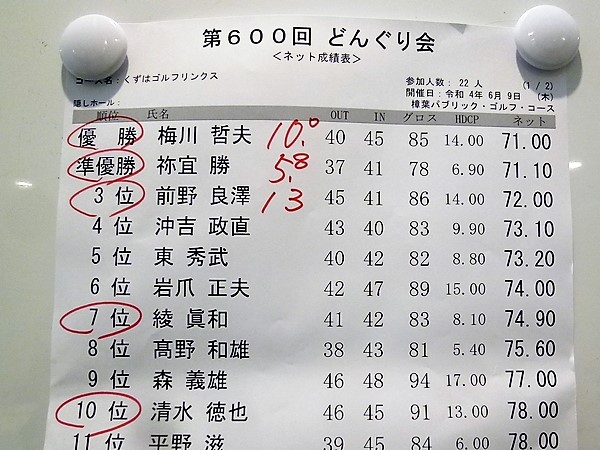 第600回 どんぐり会
<ネット成績表>
コース名：くずはゴルフリンクス
参加人数： 22 人 (1 / 2)
開催日：令和 4年 6月 9日 (木)
隠しホール： 樟葉パブリック・ゴルフ・コース
順位 氏名 OUT IN グロス HDCP ネット
優 勝 梅川 哲夫 10.0 40 45 85 14.00 71.00
準優勝 祢宜 勝 5.8 37 41 78 6.90 71.10
3 位 前野 良澤 13 45 41 86 14.00 72.00
4 位 沖吉 政直 43 40 83 9.90 73.10
5 位 東 秀武 40 42 82 8.80 73.20
6 位 岩爪 正夫 42 47 89 15.00 74.00
7 位 綾 眞和 41 42 83 8.10 74.90
8 位 髙野 和雄 38 43 81 5.40 75.60
9 位 森 義雄 46 48 94 17.00 77.00
10 位 清水 徳也 46 45 91 13.00 78.00
11 位 平野 滋 39 45 84 6.00 78.00